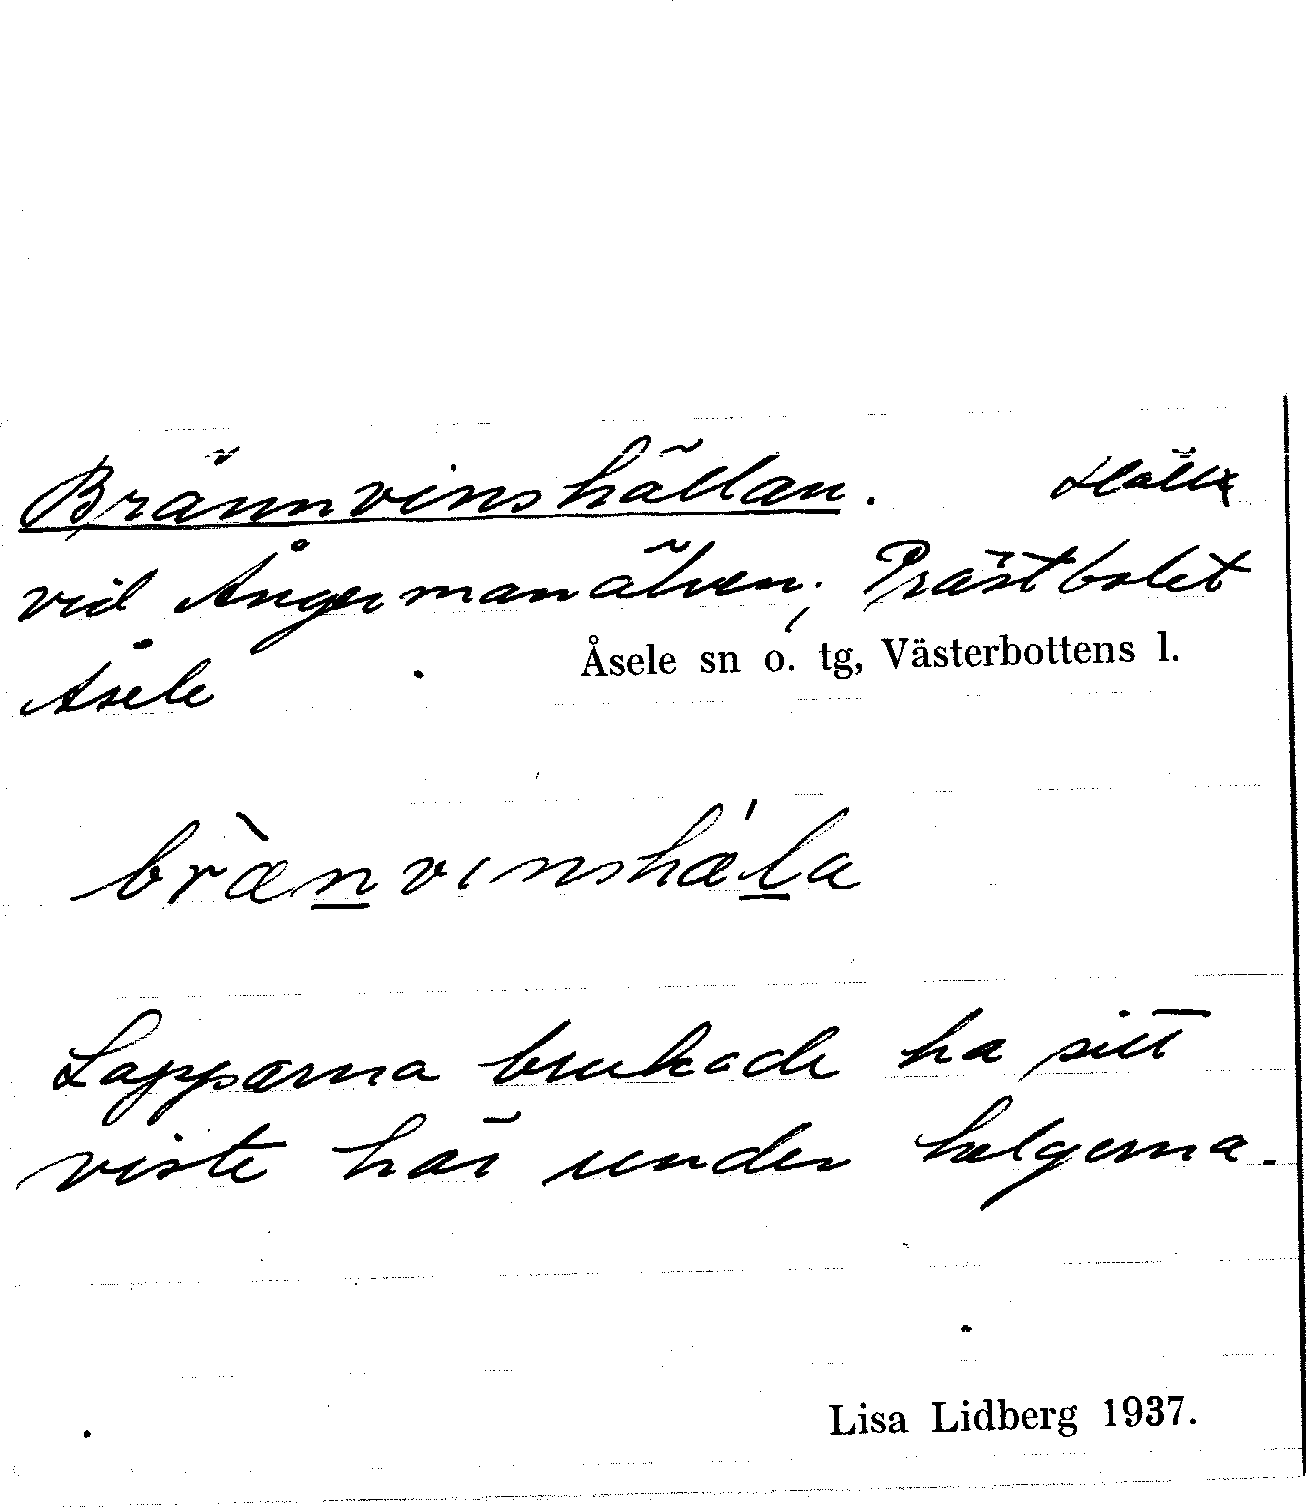 Brännvinshällan. Häll
vid Ångermanälven, Prästbolet
Åsele
Åsele sn o. tg, Västerbottens l.
bræ̀nvinshæ´la
Lapparna brukade ha sitt
viste här under helgerna.
Lisa Lidberg 1937.